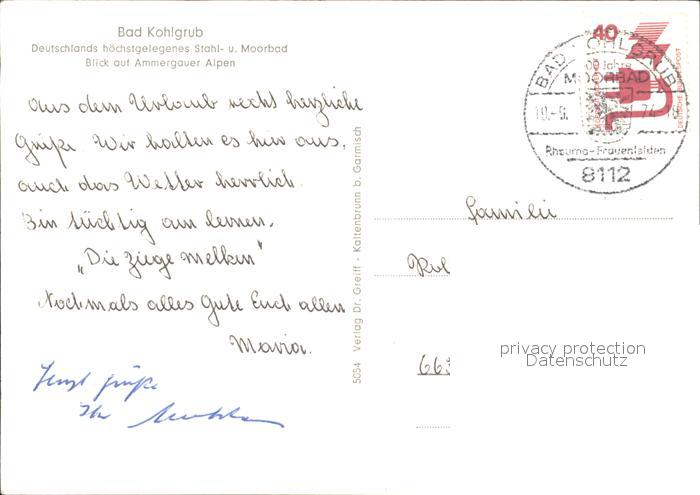 Bad Kohlgrub
Deutschlands höchstgelegenes Stahl- u. Moorbad
Blick auf Ammergauer Alpen
Aus dem Urlaub recht herzliche
Grüße. Wir halten es hier aus,
auch das Wetter herrlich.
Bin tüchtig am lernen.
„Die Ziege melken"
Nochmals alles Gute Euch allen
Maria.
Herzl. Grüße
Ihr
5054 Verlag Dr. Greiff - Kaltenbrunn b. Garmisch
40
DEUTSCHE BUNDESPOST
BAD KOHLGRUB
Jahre
MOORBAD
74
Rheuma-Frauenleiden
8112
Familie
66
privacy protection
Datenschutz